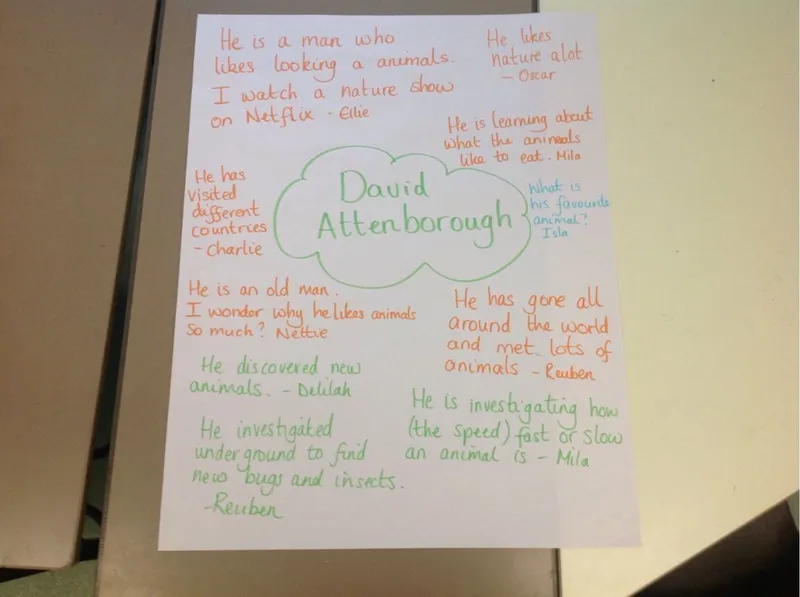 He is a man who
likes looking a animals.
I watch a nature show
on Netflix - Ellie
He likes
nature alot
- Oscar
He is learning about
what the animals
like to eat. Mila
He has
visited
different
countries
- Charlie
David
Attenborough
What is
his favourite
animal?
Isla
He is an old man.
I wonder why he likes animals
so much? Nettie
He has gone all
around the world
and met lots of
animals - Reuben
He discovered new
animals. - Delilah
He investigated
underground to find
new bugs and insects.
- Reuben
He is investigating how
(the speed) fast or slow
an animal is - Mila